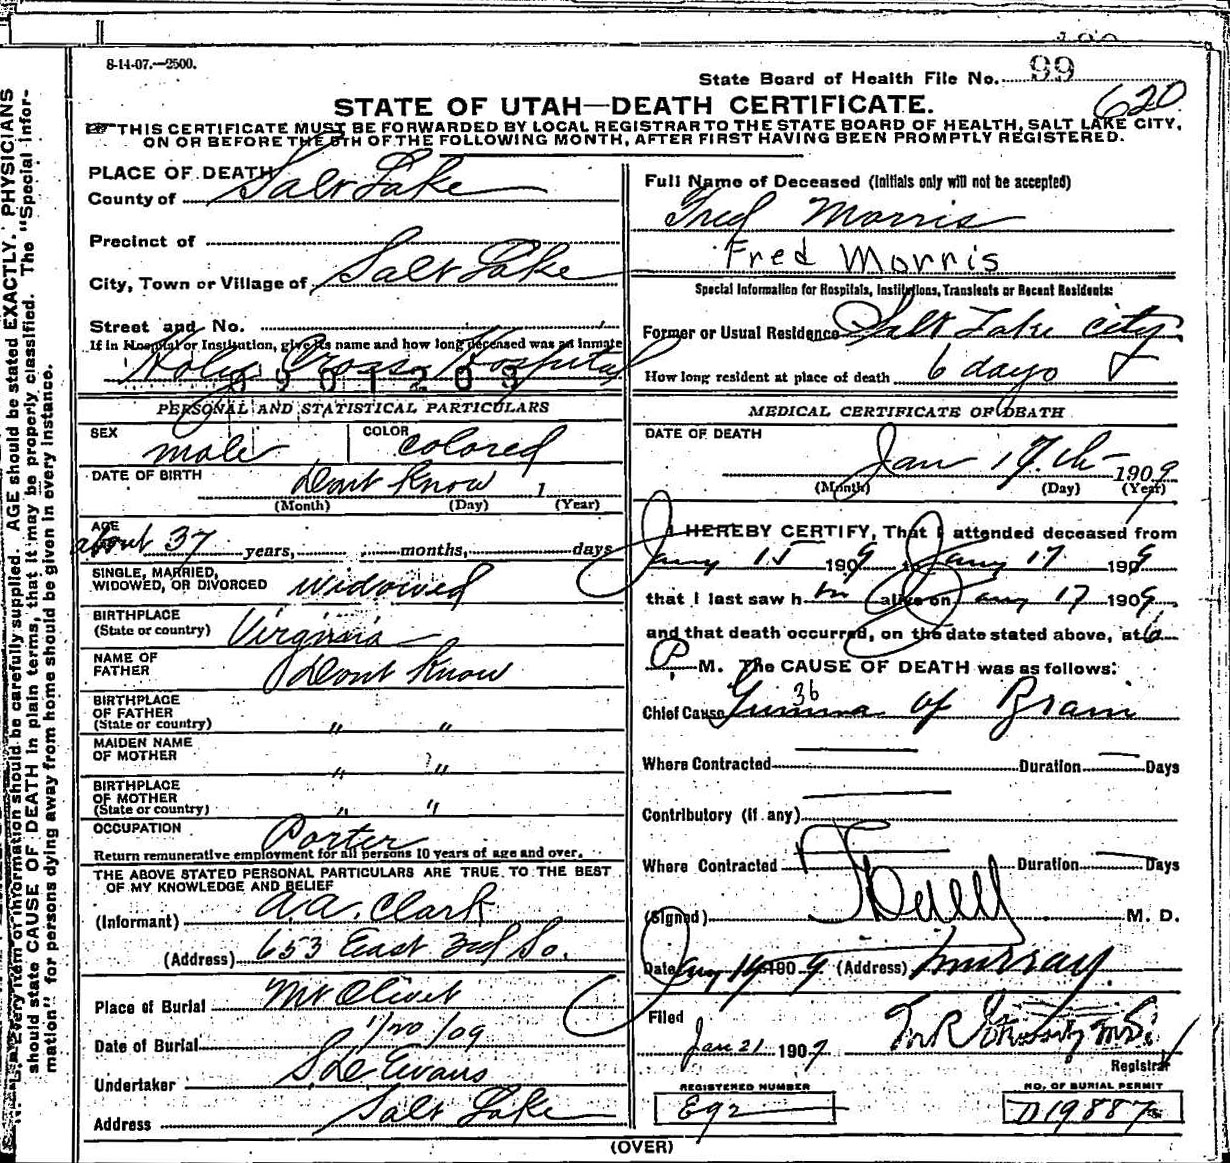 8-14-07.—2500.
State Board of Health File No. 99
620
STATE OF UTAH—DEATH CERTIFICATE.
THIS CERTIFICATE MUST BE FORWARDED BY LOCAL REGISTRAR TO THE STATE BOARD OF HEALTH, SALT LAKE CITY,
ON OR BEFORE THE 5TH OF THE FOLLOWING MONTH, AFTER FIRST HAVING BEEN PROMPTLY REGISTERED.
PLACE OF DEATH
County of Salt Lake
Precinct of
City, Town or Village of Salt Lake
Street and No.
If in Hospital or Institution, give its name and how long deceased was an inmate
Holy Cross Hospital
0901203
PERSONAL AND STATISTICAL PARTICULARS
SEX male COLOR colored
DATE OF BIRTH Dont Know 1
(Month) (Day) (Year)
AGE
about 37 years, months, days
SINGLE, MARRIED,
WIDOWED, OR DIVORCED widowed
BIRTHPLACE
(State or country) Virginia
NAME OF
FATHER Dont Know
BIRTHPLACE
OF FATHER
(State or country) " "
MAIDEN NAME
OF MOTHER " "
BIRTHPLACE
OF MOTHER
(State or country) " "
OCCUPATION Porter
Return remunerative employment for all persons 10 years of age and over.
THE ABOVE STATED PERSONAL PARTICULARS ARE TRUE TO THE BEST
OF MY KNOWLEDGE AND BELIEF
(Informant) A.A. Clark
(Address) 653 East 3rd So.
Place of Burial Mt Olivet
Date of Burial 1/20/09
Undertaker Evans
Address Salt Lake
Full Name of Deceased (Initials only will not be accepted)
Fred Morris
Fred Morris
Special Information for Hospitals, Institutions, Transients or Recent Residents:
Former or Usual Residence Salt Lake City
How long resident at place of death 6 days
MEDICAL CERTIFICATE OF DEATH
DATE OF DEATH
Jan 17th 1909
(Month) (Day) (Year)
I HEREBY CERTIFY, That I attended deceased from
Jany 15 1909 to Jany 17 1909
that I last saw him alive on Jany 17 1909,
and that death occurred, on the date stated above, at 6
P. M. The CAUSE OF DEATH was as follows:
36
Chief Cause Gumma of Brain
Where Contracted Duration Days
Contributory (if any)
Where Contracted Duration Days
(Signed) M. D.
Date Jany 19 1909 (Address) Murray
Filed
Jan 21 1909
Registrar
REGISTERED NUMBER
E92
NO. OF BURIAL PERMIT
D19887
(OVER)
N. B.—Every item of information should be carefully supplied. AGE should be stated EXACTLY. PHYSICIANS
should state CAUSE OF DEATH in plain terms, that it may be properly classified. The "Special Infor-
mation" for persons dying away from home should be given in every instance.